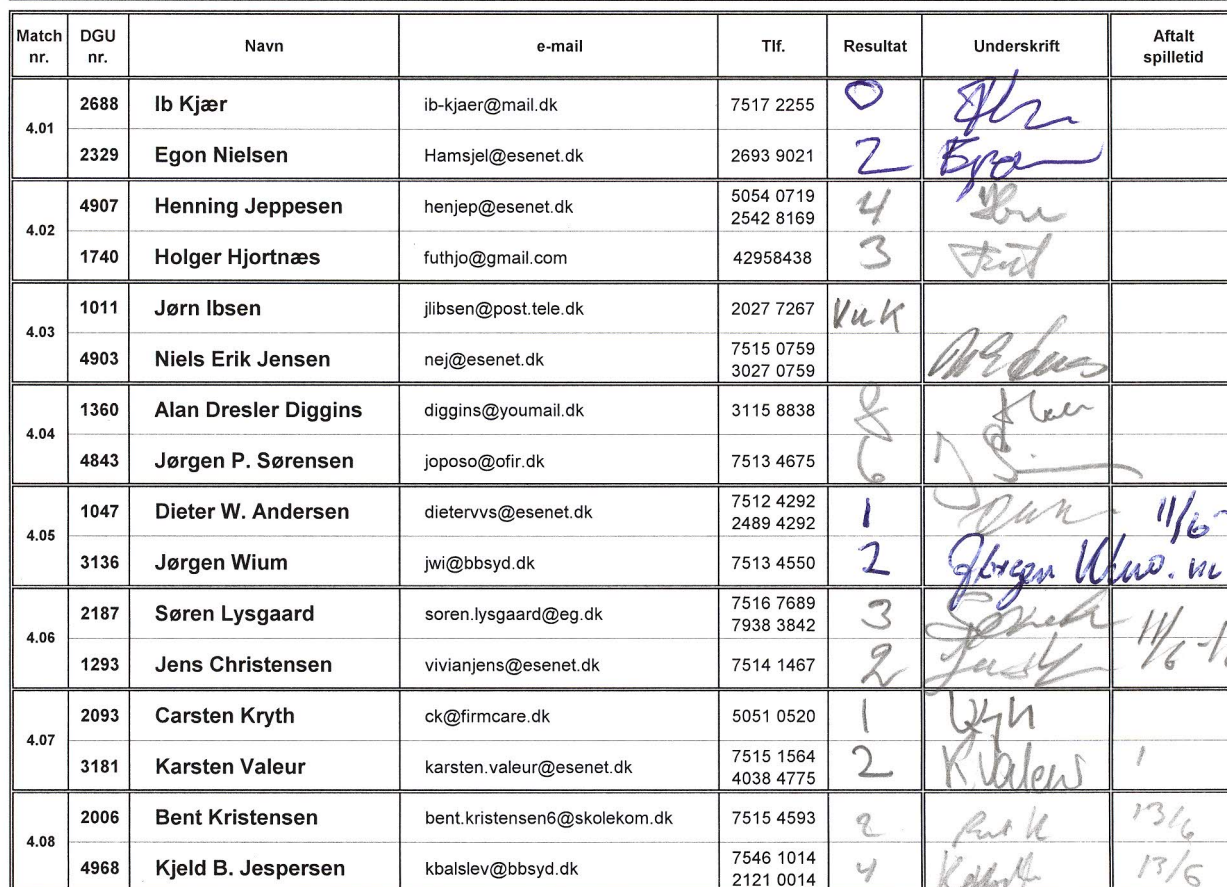 Match nr. DGU nr. Navn e-mail Tlf. Resultat Underskrift Aftalt spilletid
4.01
2688 Ib Kjær ib-kjaer@mail.dk 7517 2255 0
2329 Egon Nielsen Hamsjel@esenet.dk 2693 9021 2 Egon
4.02
4907 Henning Jeppesen henjep@esenet.dk 5054 0719 2542 8169 4
1740 Holger Hjortnæs futhjo@gmail.com 42958438 3
4.03
1011 Jørn Ibsen jlibsen@post.tele.dk 2027 7267
4903 Niels Erik Jensen nej@esenet.dk 7515 0759 3027 0759
4.04
1360 Alan Dresler Diggins diggins@youmail.dk 3115 8838 8
4843 Jørgen P. Sørensen joposo@ofir.dk 7513 4675 6
4.05
1047 Dieter W. Andersen dietervvs@esenet.dk 7512 4292 2489 4292 1 11/6
3136 Jørgen Wium jwi@bbsyd.dk 7513 4550 2 Jørgen Wium
4.06
2187 Søren Lysgaard soren.lysgaard@eg.dk 7516 7689 7938 3842 3 11/6
1293 Jens Christensen vivianjens@esenet.dk 7514 1467 2
4.07
2093 Carsten Kryth ck@firmcare.dk 5051 0520 1
3181 Karsten Valeur karsten.valeur@esenet.dk 7515 1564 4038 4775 2 K. Valeur
4.08
2006 Bent Kristensen bent.kristensen6@skolekom.dk 7515 4593 2 13/6
4968 Kjeld B. Jespersen kbalslev@bbsyd.dk 7546 1014 2121 0014 4 13/6